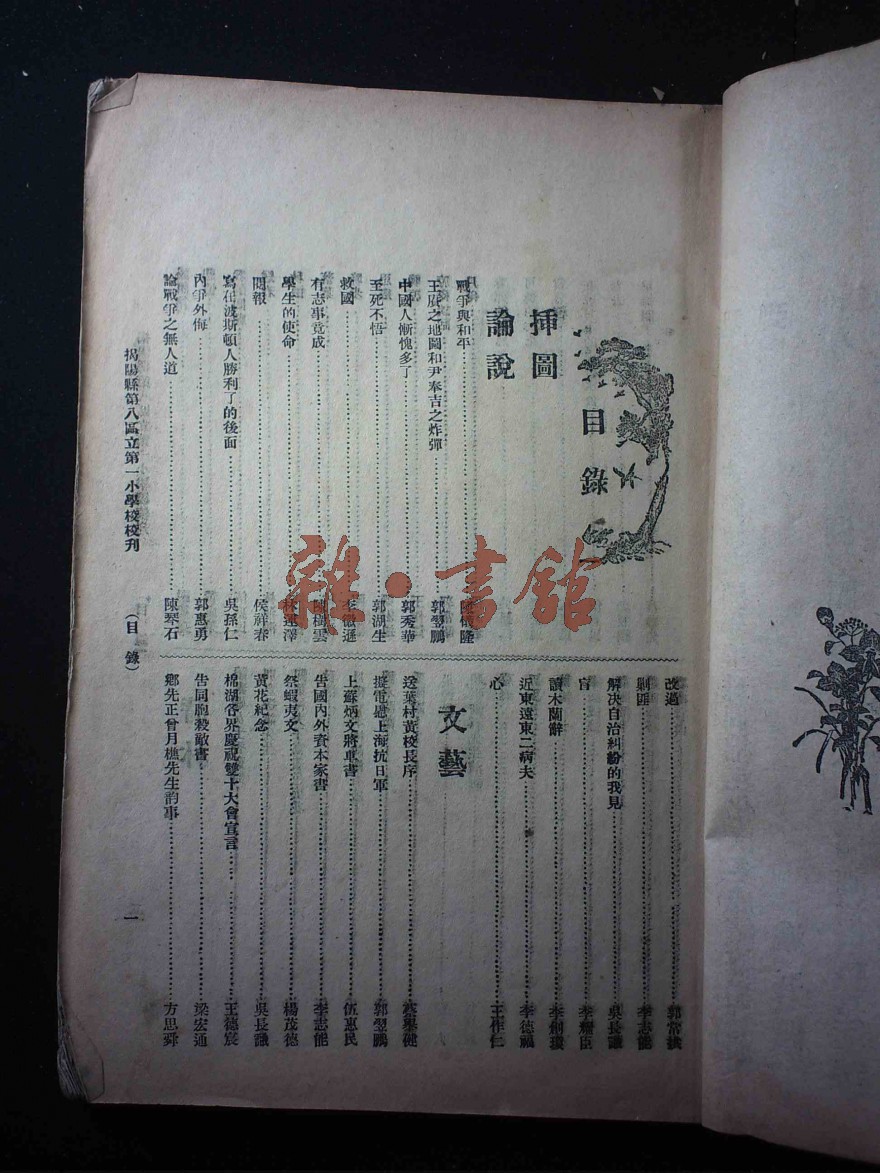 目錄
挿圖
論說
戰爭與和平
王賡之地圖和尹奉吉之炸彈 郭翌鵬
中國人慚愧多了 郭秀華
至死不悟 郭湖生
救國 李傲遜
有志事竟成 陳樹雲
學生的使命 林運澤
閱報 侯祥春
寫在波斯頓人勝利了的後面 吳孫仁
內爭外侮 郭惠勇
論戰爭之無人道 陳琴石
改過
剿匪 李志能
解決自治糾紛的我見 吳長識
盲 李耀臣
讀木蘭辭
近東遠東二病夫 李德福
心 王作仁
文藝
送葉村黃校長序
擬電慰上海抗日軍 郭翌鵬
上蘇炳文將軍書 伍惠民
告國內外資本家書 李志能
祭蝦夷文 楊茂德
黃花紀念 吳長識
棉湖各界慶祝雙十大會宣言 王德宸
告同胞殺敵書 梁宏通
鄉先正曾月樵先生韵事 方思舜
揭陽縣第八區立第一小學校校刊 （目錄） 一
雜·書舘